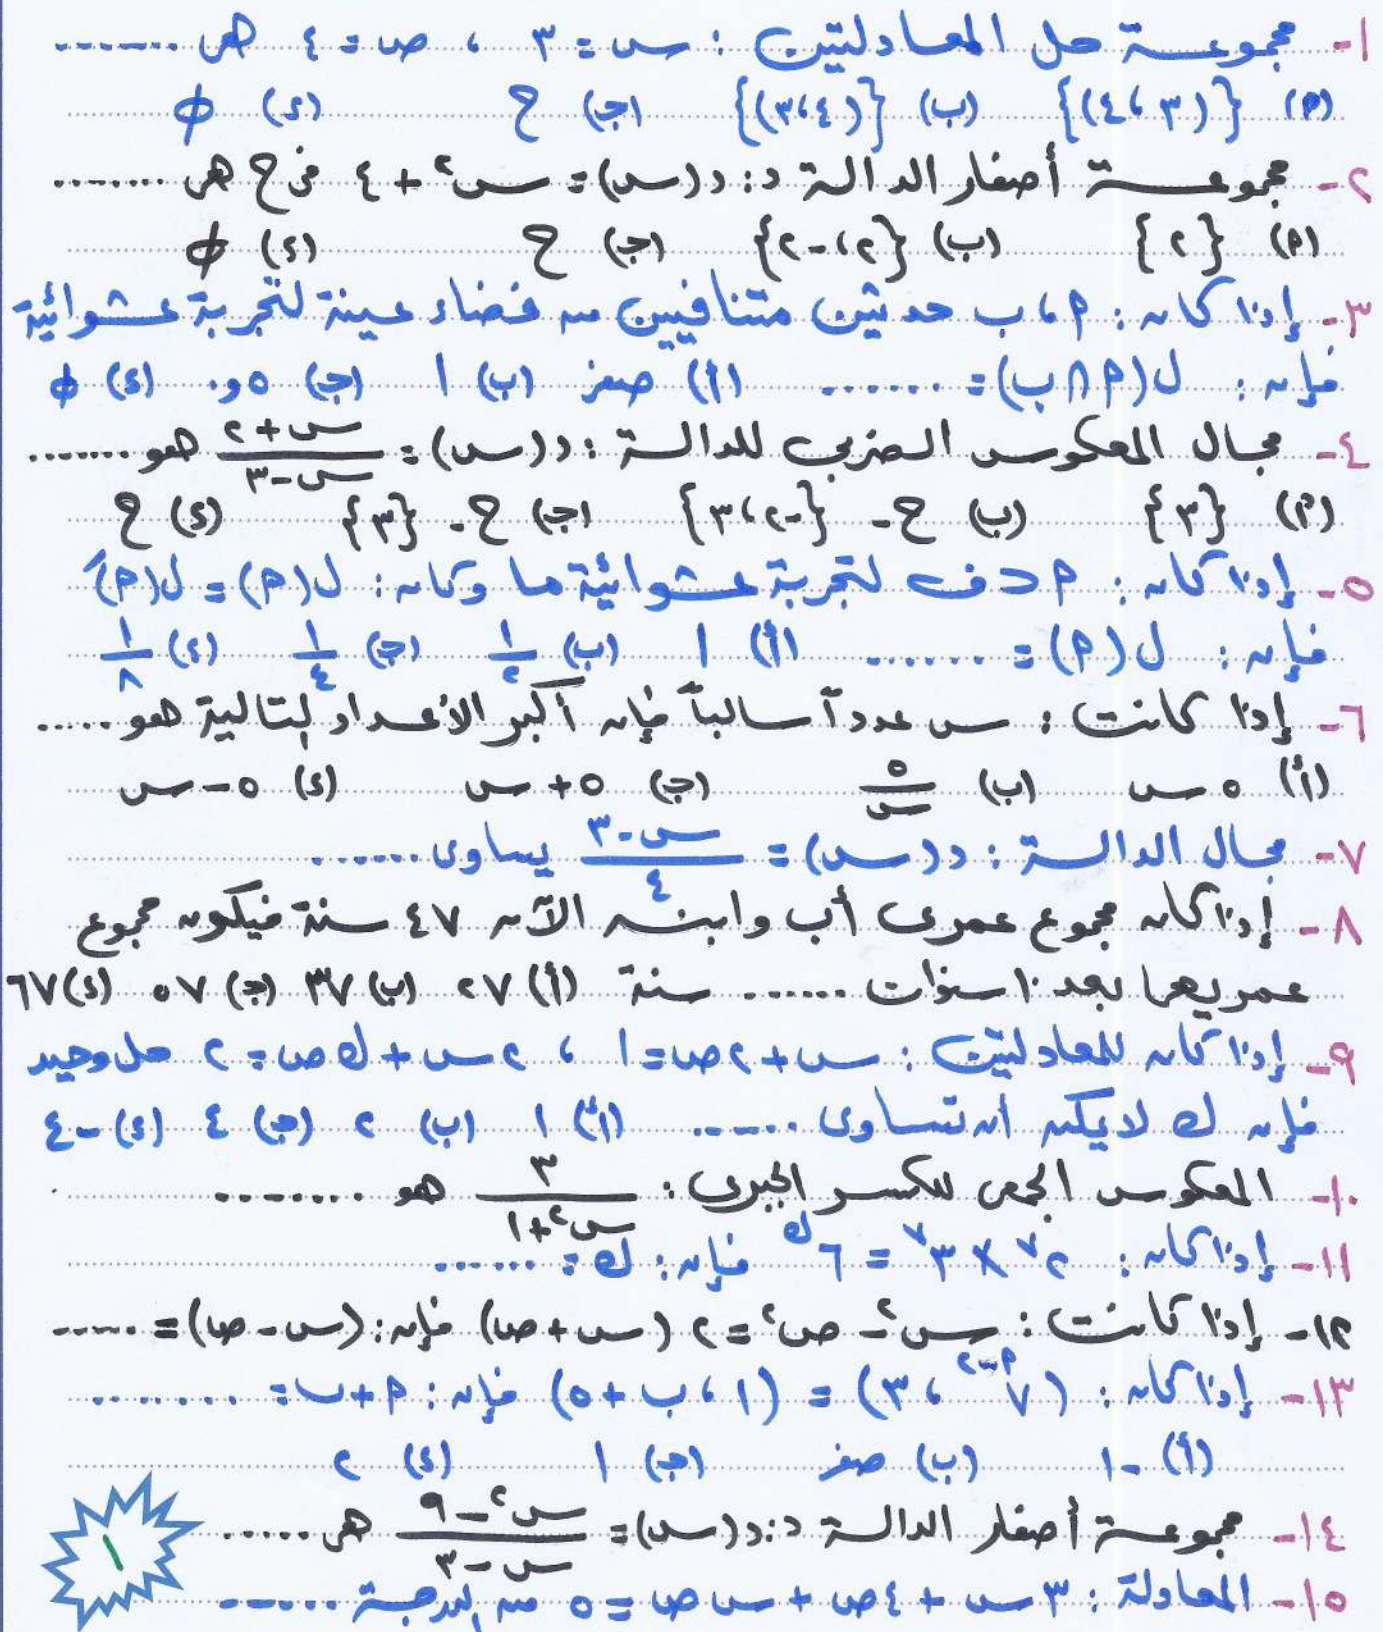 ١- مجموعة حل المعادلتين : س = ٣ ، ص = ٤ هى ......
(٢) {(٣ ، ٤)} (ب) {(٤ ، ٣)} (جـ) ح (د) φ
٢- مجموعة أصفار الدالة د : د(س) = س² + ٤ فى ح هى .......
(٢) {٢} (ب) {٢ ، -٢} (جـ) ح (د) φ
٣- إذا كان : ٢ ، ب حدثين متنافيين من فضاء عينة لتجربة عشوائية
فإن : ل(٢ ∩ ب) = ....... (أ) صفر (ب) ١ (جـ) ٥و٠ (د) φ
٤- مجال المعكوس الضربى للدالة : د(س) = (س + ٢)/(س - ٣) هو .......
(٢) {٣} (ب) ح - {-٢ ، ٣} (جـ) ح - {٣} (د) ح
٥- إذا كان : ٢ ⊂ ف لتجربة عشوائية ما وكان : ل(٢) = ل(٢َ)
فإن : ل(٢) = ....... (أ) ١ (ب) ١/٢ (جـ) ١/٤ (د) ١/٨
٦- إذا كانت : س عدداً سالباً فإن أكبر الأعداد التالية هو .....
(أ) ٥ س (ب) ٥/س (جـ) ٥ + س (د) ٥ - س
٧- مجال الدالة : د(س) = (س - ٣)/٤ يساوى ......
٨- إذا كان مجموع عمرى أب وابنه الآن ٤٧ سنة فيكون مجموع
عمريهما بعد ١٠ سنوات ...... سنة (أ) ٢٧ (ب) ٣٧ (جـ) ٥٧ (د) ٦٧
٩- إذا كان للمعادلتين : س + ٢ص = ١ ، ٢س + ك ص = ٢ حل وحيد
فإن ك لا يمكن أن تساوى ...... (أ) ١ (ب) ٢ (جـ) ٤ (د) -٤
١٠- المعكوس الجمعى للكسر الجبرى : ٣/(س² + ١) هو ........
١١- إذا كان : ٢⁷ × ٣⁷ = ٦ك فإن : ك = ......
١٢- إذا كانت : س² - ص² = ٢ (س + ص) فإن : (س - ص) = .....
١٣- إذا كان : (٧^(٢-٢) ، ٣) = (١ ، ب + ٥) فإن : ٢ + ب = ........
(أ) -١ (ب) صفر (جـ) ١ (د) ٢
١٤- مجموعة أصفار الدالة د : د(س) = (س² - ٩)/(س - ٣) هى .....
١٥- المعادلة : ٣س + ٤ص + س ص = ٥ من الدرجة ......
١